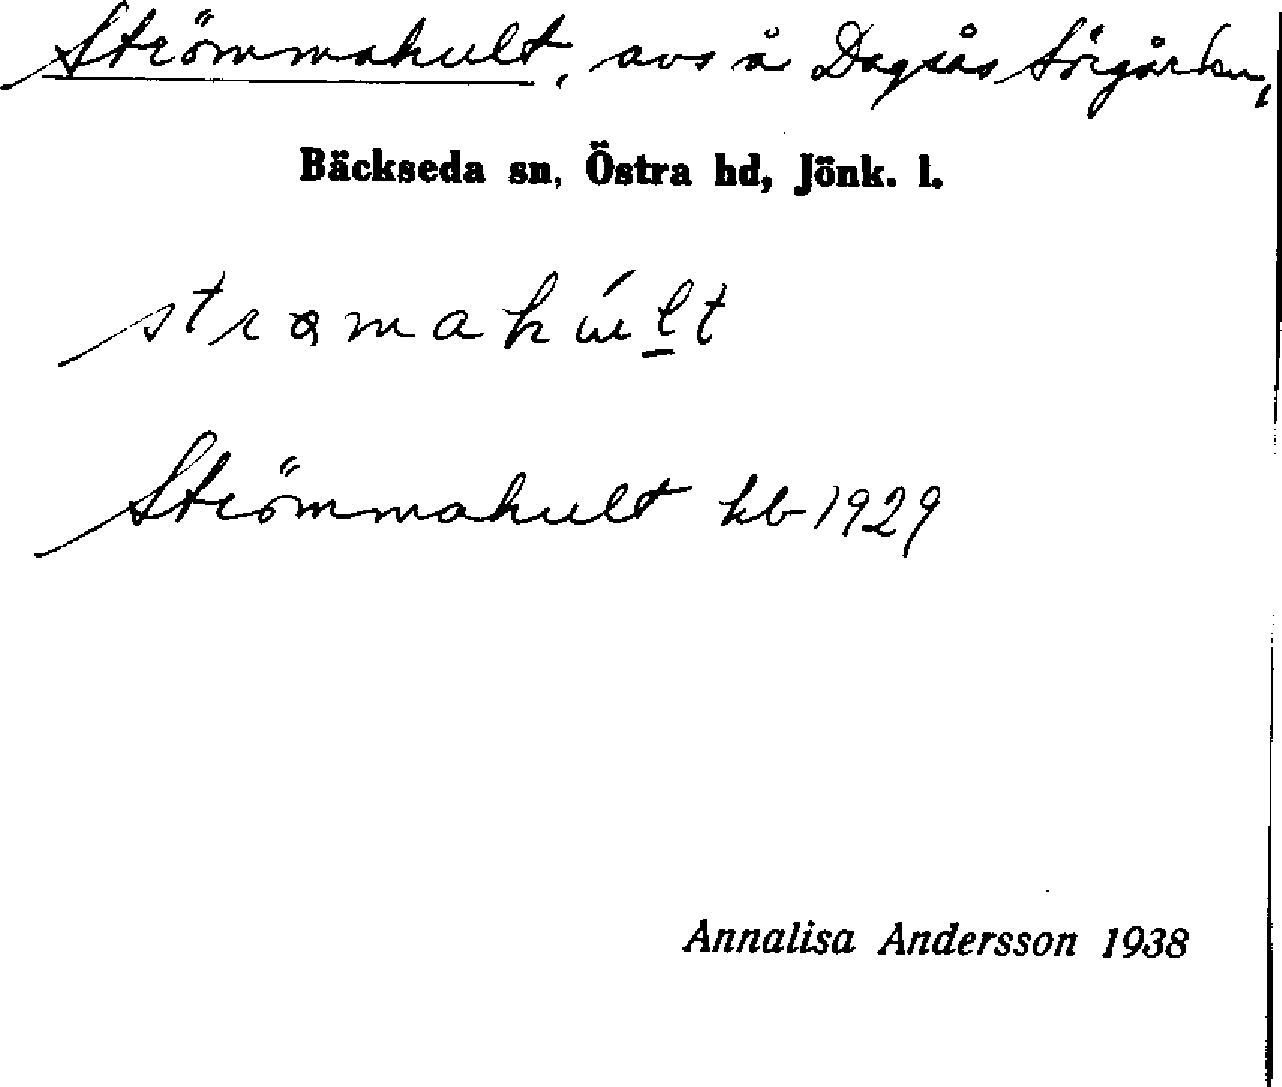 Strömmakult, avs å Dagsås Sörgården,
Bäckseda sn, Östra hd, Jönk. l.
Strömmakult hb 1929
Annalisa Andersson 1938